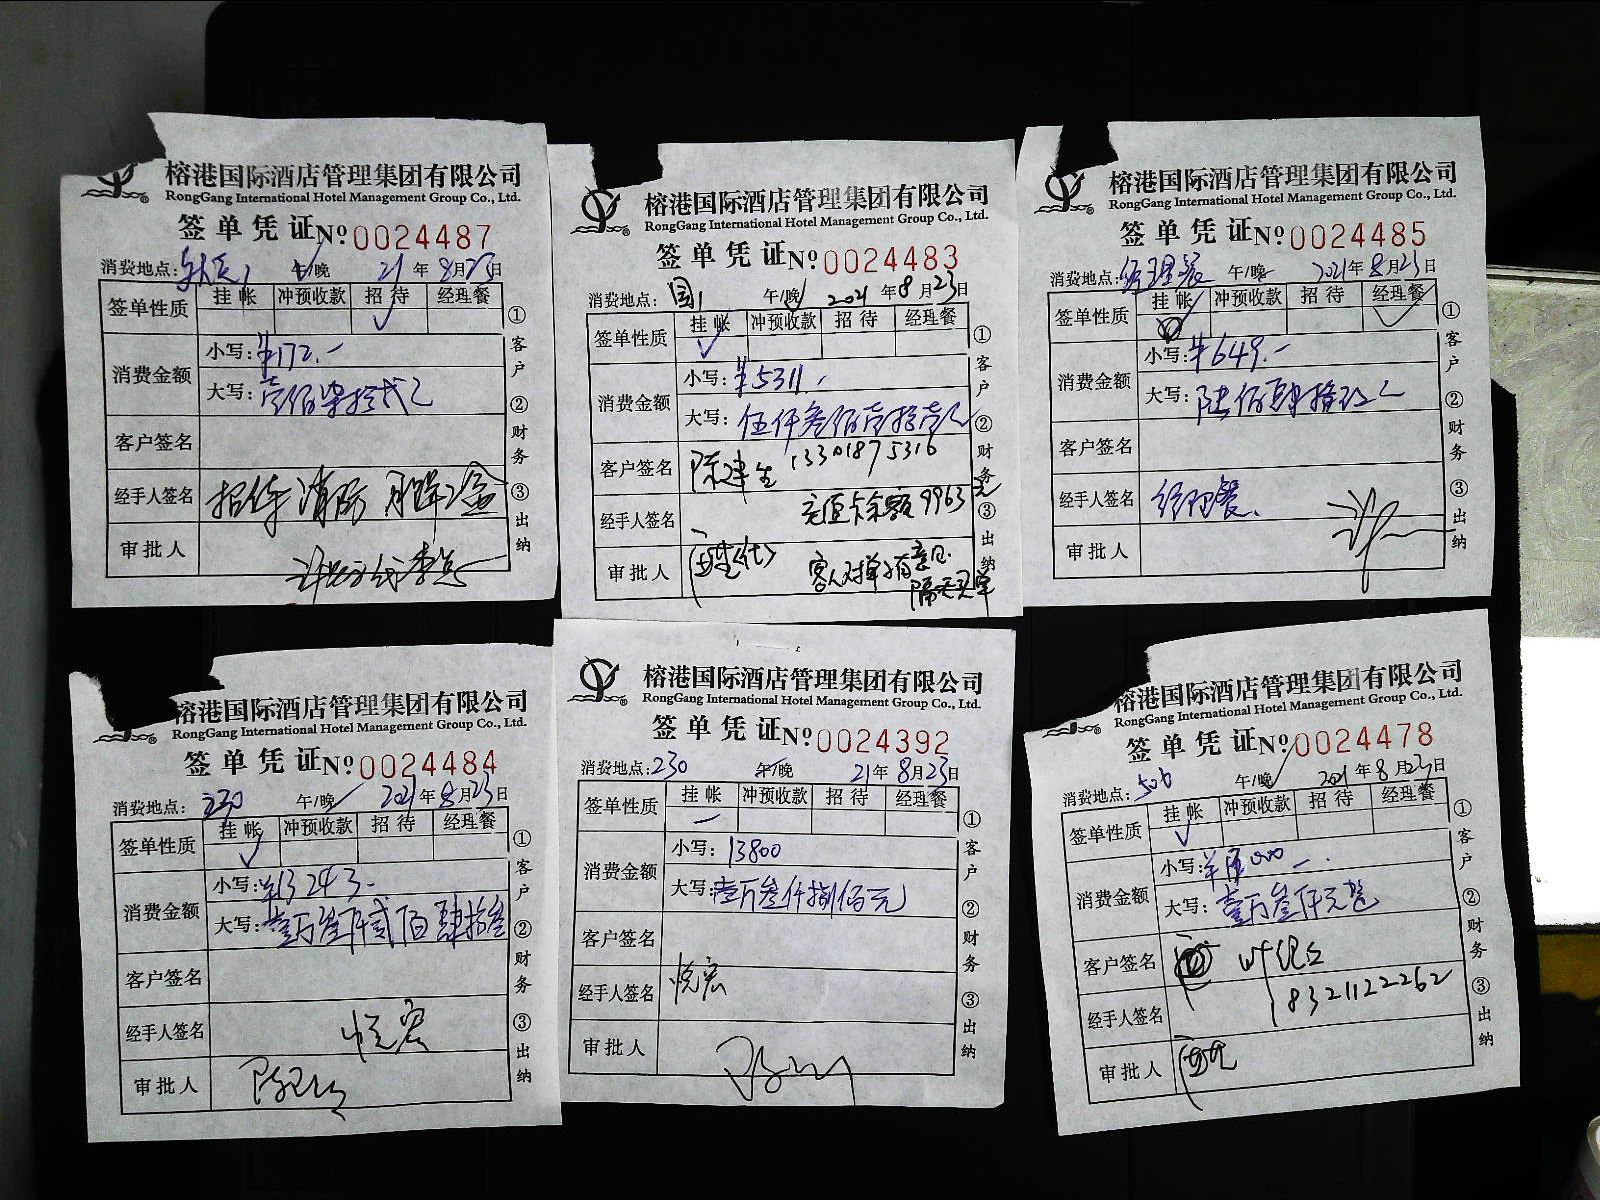 榕港国际酒店管理集团有限公司
RongGang International Hotel Management Group Co., Ltd.
签单凭证 № 0024487
消费地点: 午/晚 21年8月23日
签单性质 挂帐 冲预收款 招待 经理餐
消费金额 小写: ¥172.-
大写: 壹佰柒拾贰元
客户签名
经手人签名 招待消防
审批人
① 客户 ② 财务 ③ 出纳
榕港国际酒店管理集团有限公司
RongGang International Hotel Management Group Co., Ltd.
签单凭证 № 0024483
消费地点: 国1 午/晚 2021年8月23日
签单性质 挂帐 冲预收款 招待 经理餐
消费金额 小写: ¥5311.
大写: 伍仟叁佰壹拾壹元
客户签名 陈建生 13301875316
经手人签名 充值卡余额9963元
审批人 客人对单有意见
隔天买单
① 客户 ② 财务 ③ 出纳
榕港国际酒店管理集团有限公司
RongGang International Hotel Management Group Co., Ltd.
签单凭证 № 0024485
消费地点: 经理餐 午/晚 2021年8月23日
签单性质 挂帐 冲预收款 招待 经理餐
消费金额 小写: ¥649.-
大写: 陆佰肆拾玖元
客户签名
经手人签名 经理餐.
审批人
① 客户 ② 财务 ③ 出纳
榕港国际酒店管理集团有限公司
RongGang International Hotel Management Group Co., Ltd.
签单凭证 № 0024484
消费地点: 230 午/晚 2021年8月23日
签单性质 挂帐 冲预收款 招待 经理餐
消费金额 小写: ¥13243-
大写: 壹万叁仟贰佰肆拾叁
客户签名
经手人签名 悦宏
审批人
① 客户 ② 财务 ③ 出纳
榕港国际酒店管理集团有限公司
RongGang International Hotel Management Group Co., Ltd.
签单凭证 № 0024392
消费地点: 230 午/晚 21年8月23日
签单性质 挂帐 冲预收款 招待 经理餐
消费金额 小写: 13800
大写: 壹万叁仟捌佰元
客户签名
经手人签名 悦宏
审批人
① 客户 ② 财务 ③ 出纳
榕港国际酒店管理集团有限公司
RongGang International Hotel Management Group Co., Ltd.
签单凭证 № 0024478
消费地点: 506 午/晚 2021年8月23日
签单性质 挂帐 冲预收款 招待 经理餐
消费金额 小写:
大写: 壹万叁仟元整
客户签名 叶纪红
经手人签名 18321122262
审批人
① 客户 ② 财务 ③ 出纳